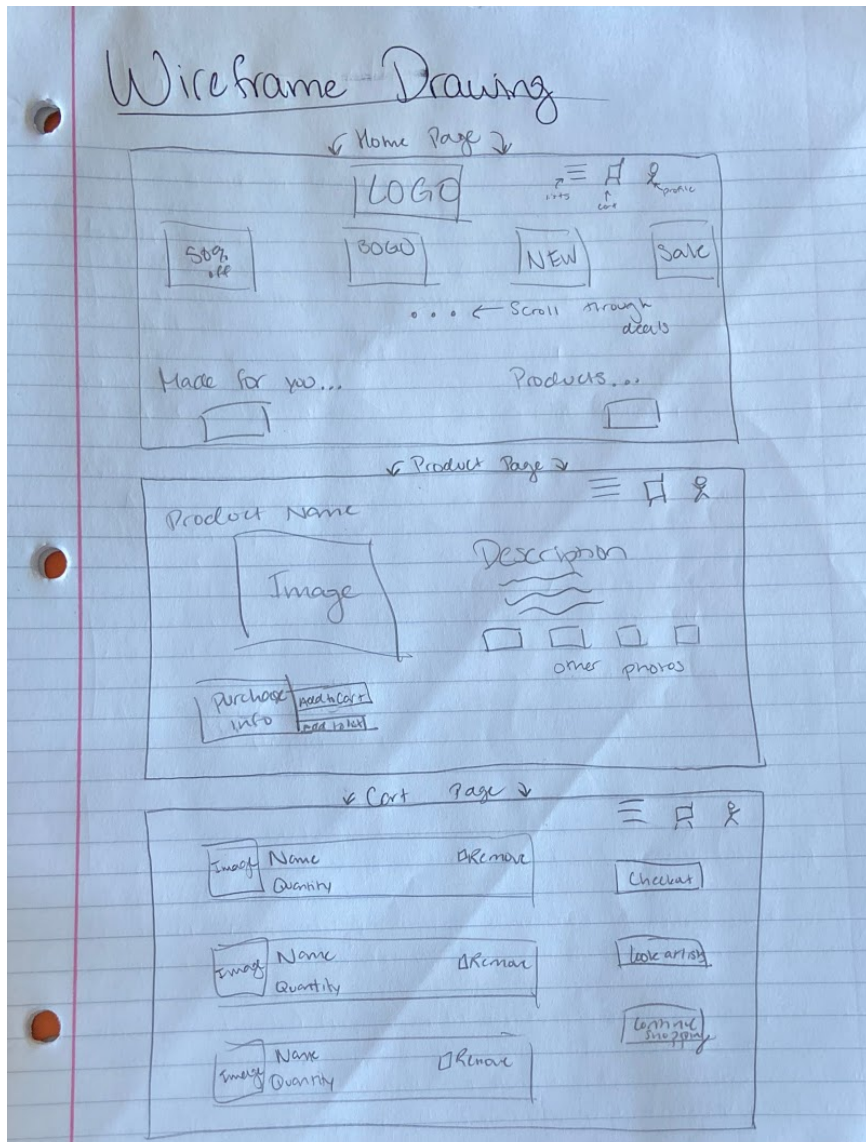 Wireframe Drawing
Home Page
LOGO
lists
cart
profile
50%
off
BOGO
NEW
Sale
Scroll through
deals
Made for you...
Products...
Product Page
Product Name
Image
Description
other photos
Purchase
info
Add to Cart
Add to list
Cart Page
Image
Name
Quantity
Remove
Checkout
Image
Name
Quantity
Remove
Look at lists
Image
Name
Quantity
Remove
Continue
Shopping